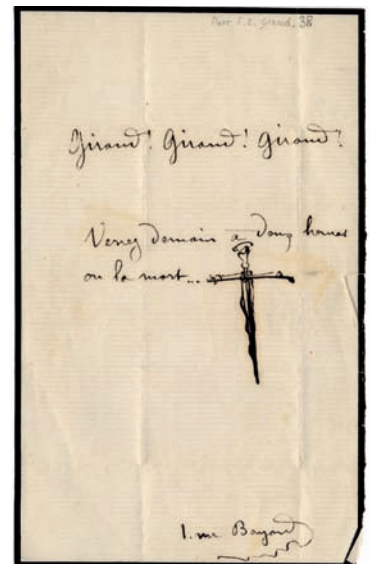 Giraud! Giraud! Giraud!
Venez demain à deux heures
ou la mort...
1. rue Bayard